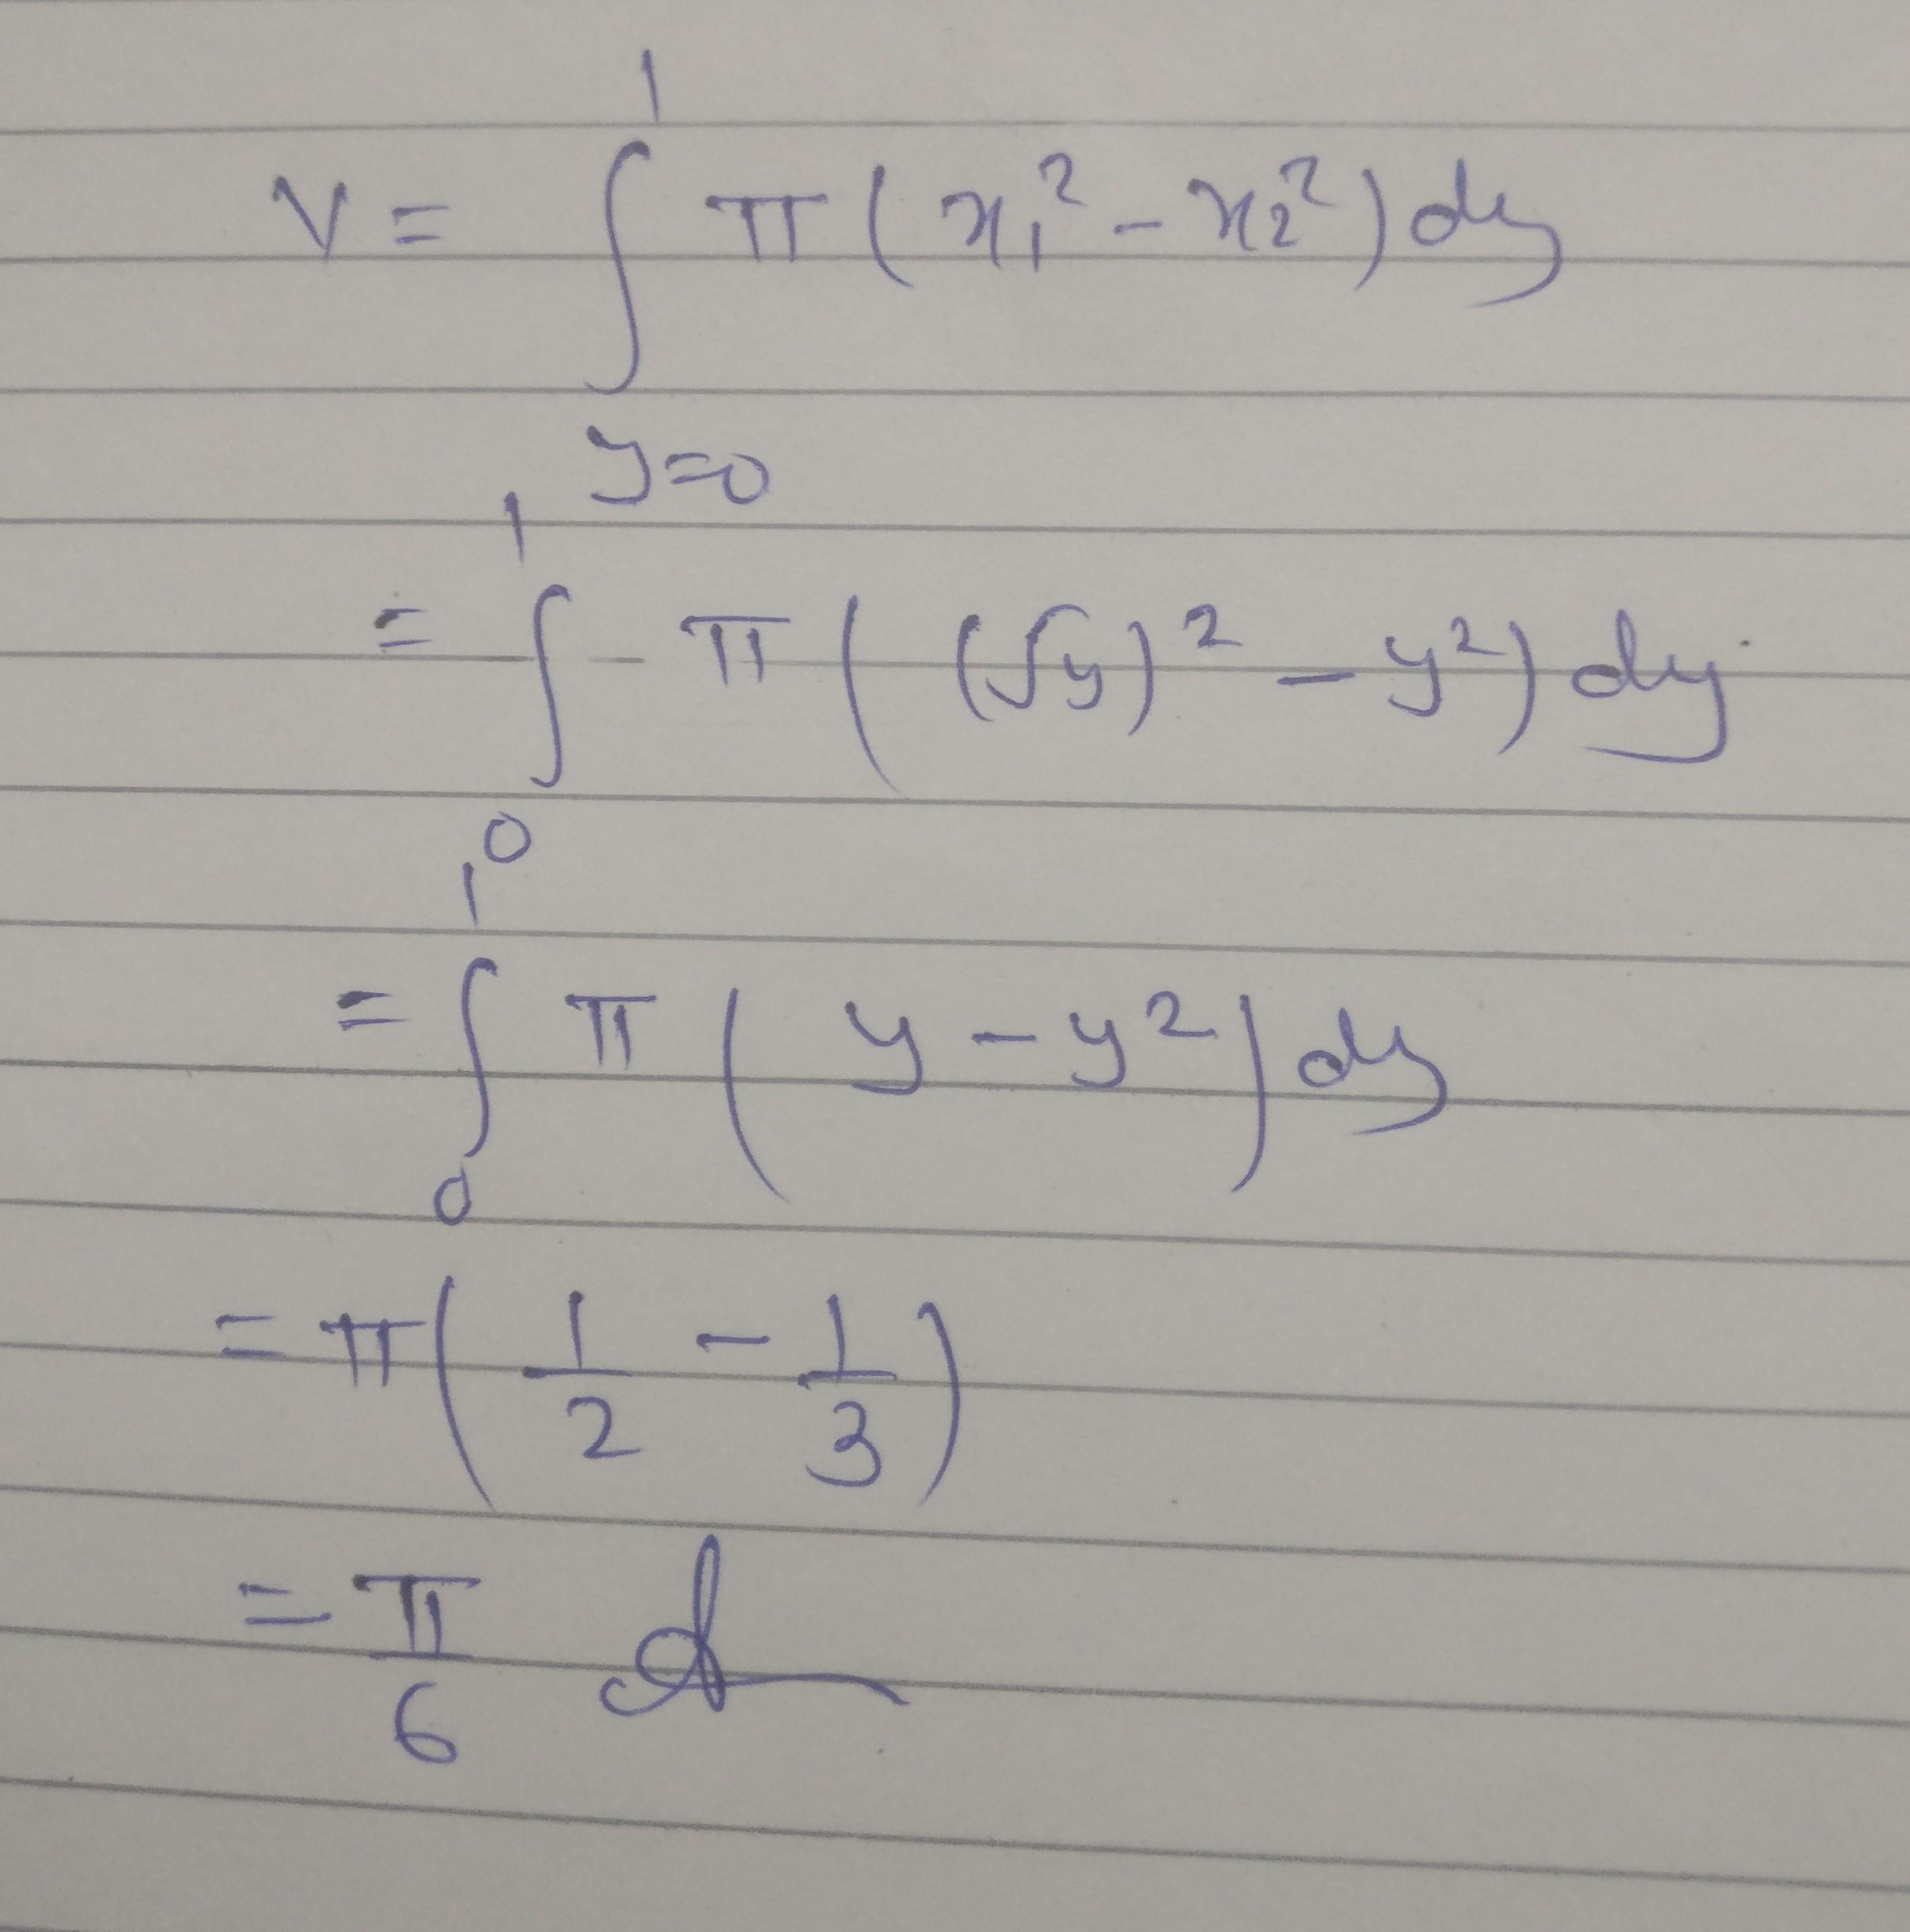 1
V = ∫ π ( x₁² - x₂² ) dy
y=0
1
= ∫ - π ( (√y)² - y² ) dy
0
1
= ∫ π ( y - y² ) dy
0
= π ( 1/2 - 1/3 )
= π/6